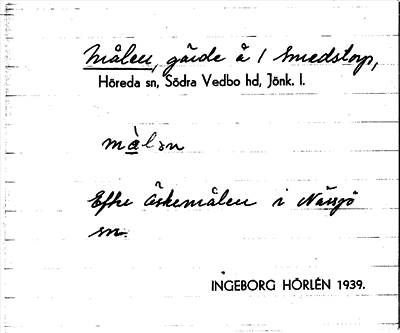 Målen, gärde å 1 Smedstorp,
Höreda sn, Södra Vedbo hd, Jönk. l.
målən
Efter Äskemålen i Nässjö
sn.
INGEBORG HÖRLÉN 1939.